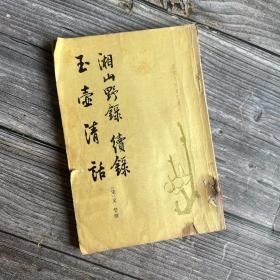 湘山野錄 續錄
玉壺清話
〔宋〕文瑩撰